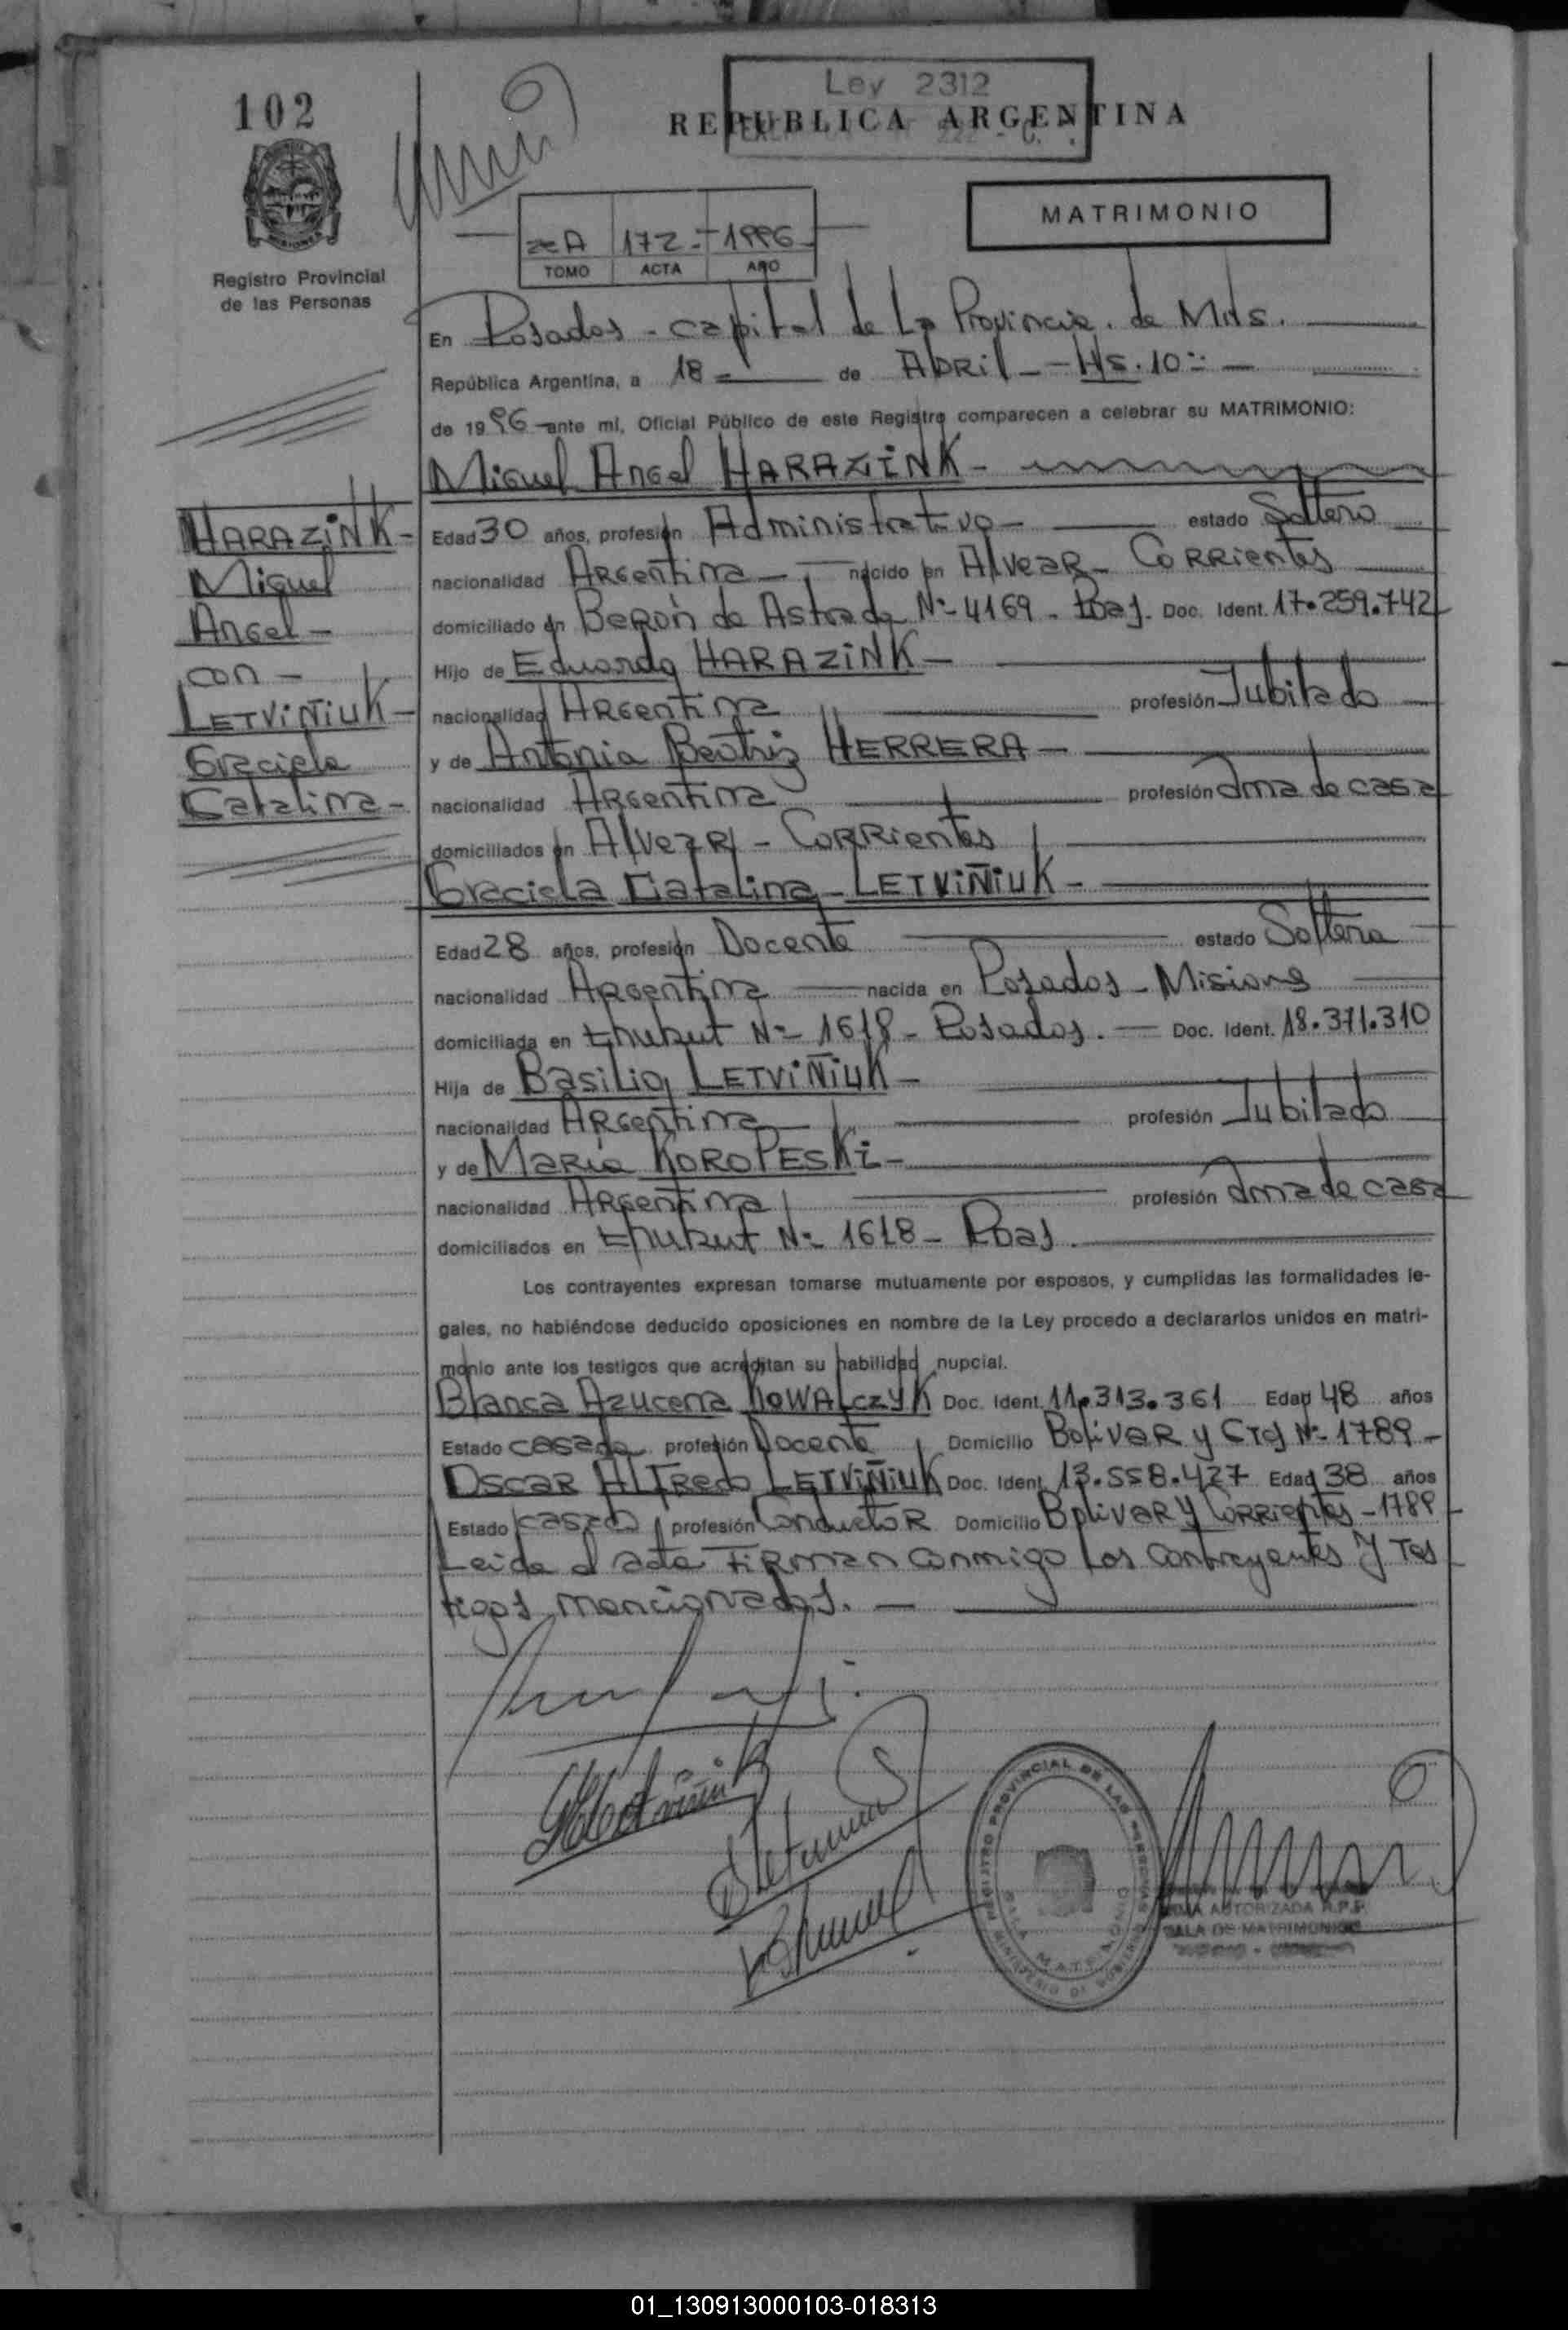 102
Ley 2312
REPUBLICA ARGENTINA
MATRIMONIO
A 172 - 1996
TOMO ACTA AÑO
Registro Provincial
de las Personas
En Posadas - capital de La Provincia. de Mnes.
República Argentina, a 18 de ABRil - Hs. 10
de 1996 ante mí, Oficial Público de este Registro comparecen a celebrar su MATRIMONIO:
Miguel Angel HARAZiNK -
HARAZiNK -
Miguel
Angel -
con -
LETViÑiuK -
Graciela
Catalina -
Edad 30 años, profesión Administrativo - estado Soltero
nacionalidad Argentina - nacido en Alvear - Corrientes
domiciliado en Berón de Astrada Nº 4169 - Pdas. Doc. Ident. 17.259.742
Hijo de Eduardo HARAZiNK -
nacionalidad Argentina profesión Jubilado
y de Antonia Beatriz HERRERA -
nacionalidad Argentina profesión Ama de casa
domiciliados en Alvear - Corrientes
Graciela Catalina - LETViÑiuK -
Edad 28 años, profesión Docente estado Soltera
nacionalidad Argentina nacida en Posadas - Misiones
domiciliada en Chubut Nº 1618 - Posadas. Doc. Ident. 18.371.310
Hija de Basilio LETViÑiuK -
nacionalidad Argentina profesión Jubilado
y de Maria KOROPESKi -
nacionalidad Argentina profesión Ama de casa
domiciliados en Chubut Nº 1618 - Pdas.
Los contrayentes expresan tomarse mutuamente por esposos, y cumplidas las formalidades le-
gales, no habiéndose deducido oposiciones en nombre de la Ley procedo a declararlos unidos en matri-
monio ante los testigos que acreditan su habilidad nupcial.
Blanca Azucena KOWALCZYK Doc. Ident. 11.313.361 Edad 48 años
Estado casada profesión Docente Domicilio Bolivar y Ctes Nº 1789 -
Oscar Alfredo LETViÑiuK Doc. Ident. 13.558.427 Edad 38 años
Estado casado profesión Conductor Domicilio Bolivar y Corrientes - 1789
Leida el acta Firman conmigo Los Contrayentes y Tes
tigos mencionados. -
REGISTRO PROVINCIAL DE LAS PERSONAS
AUTORIZADA R.P.P.
SALA DE MATRIMONIOS
01_130913000103-018313